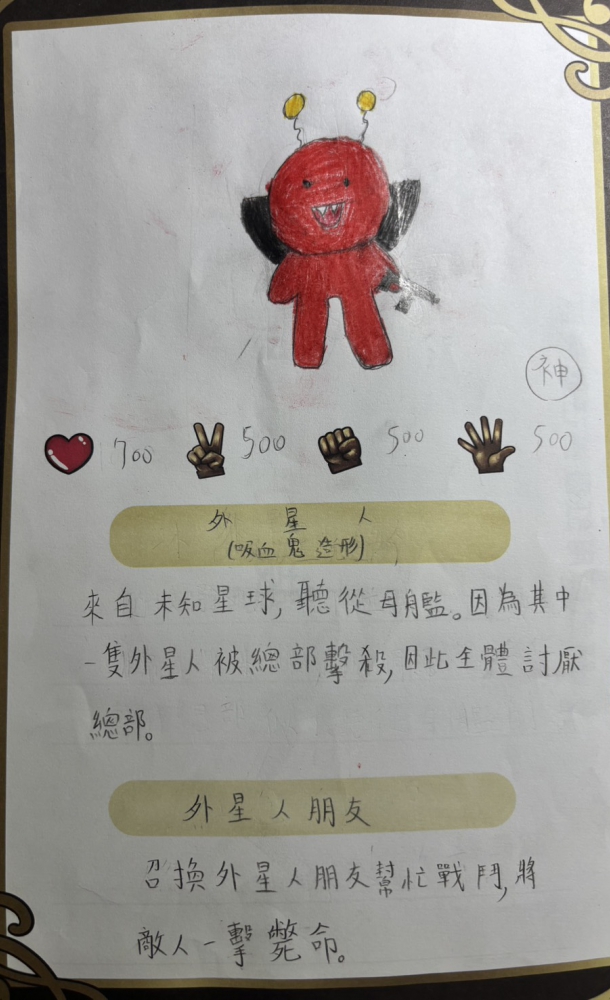 神
700 500 500 500
外星人
(吸血鬼造形)
來自未知星球,聽從母艦。因為其中
一隻外星人被總部擊殺,因此全體討厭
總部。
外星人朋友
召換外星人朋友幫忙戰鬥,將
敵人一擊斃命。